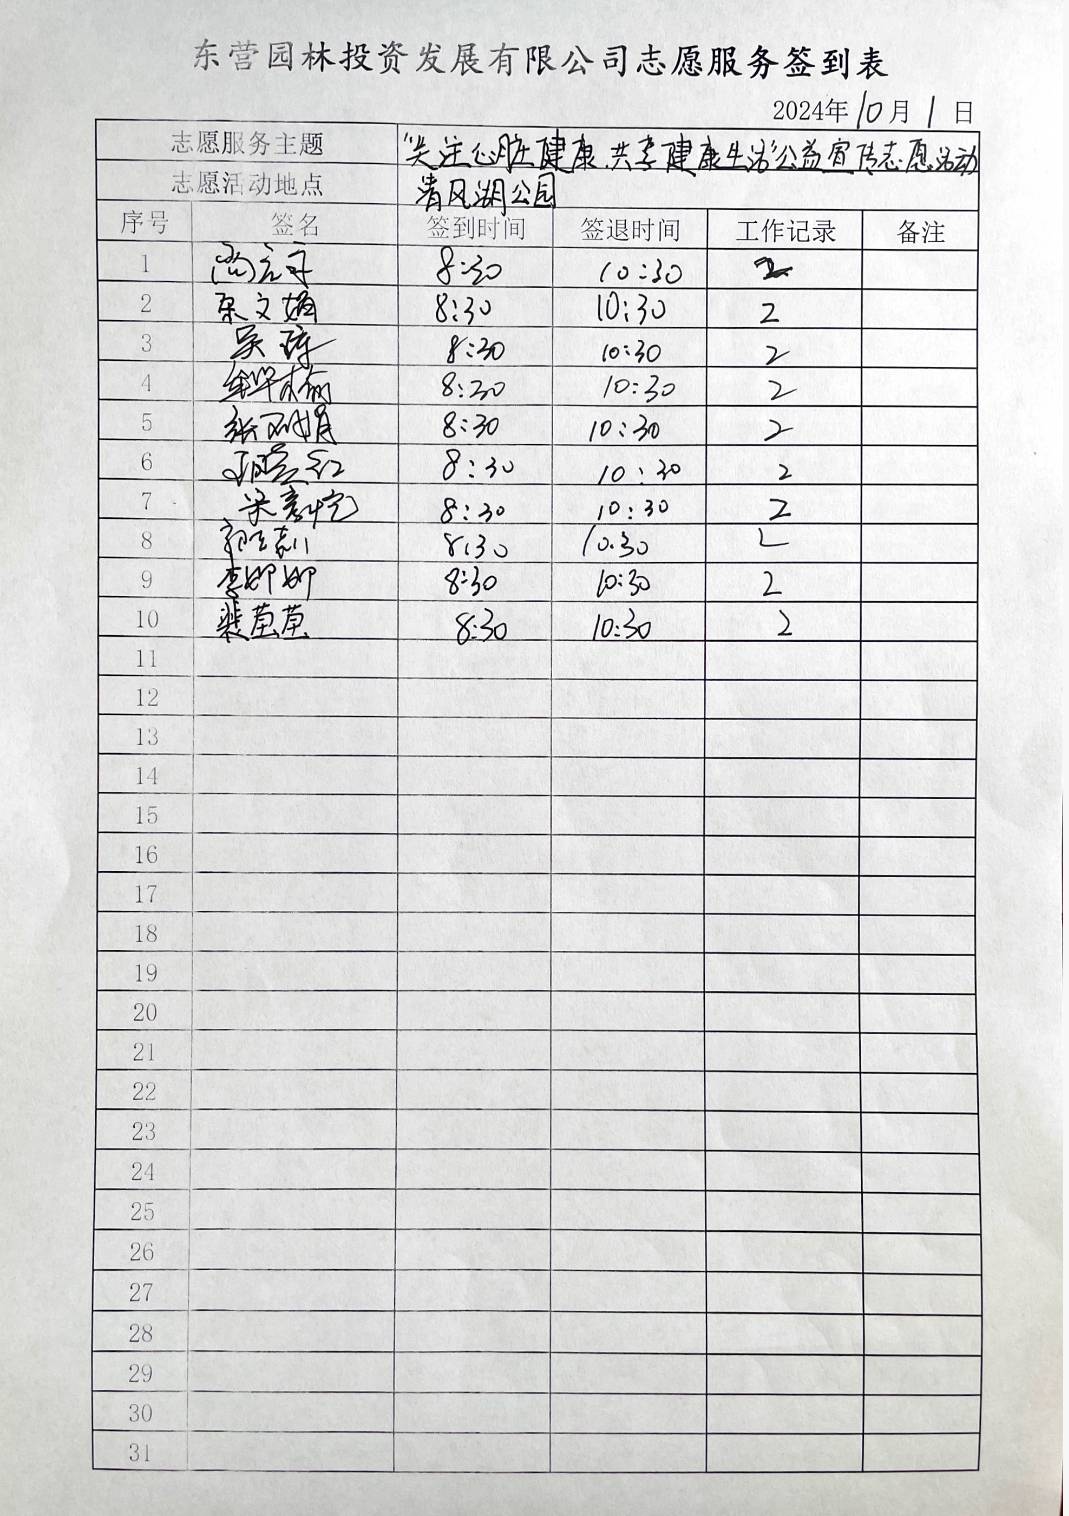 东营园林投资发展有限公司志愿服务签到表
2024年10月1日
志愿服务主题 "关注心脏健康.共享健康生活"公益宣传志愿活动
志愿活动地点 清风湖公园
序号 签名 签到时间 签退时间 工作记录 备注
1 8:30 10:30 2
2 8:30 10:30 2
3 8:30 10:30 2
4 8:30 10:30 2
5 张丽娟 8:30 10:30 2
6 8:30 10:30 2
7 8:30 10:30 2
8 8:30 10:30 2
9 李娜娜 8:30 10:30 2
10 裴苗苗 8:30 10:30 2
11
12
13
14
15
16
17
18
19
20
21
22
23
24
25
26
27
28
29
30
31